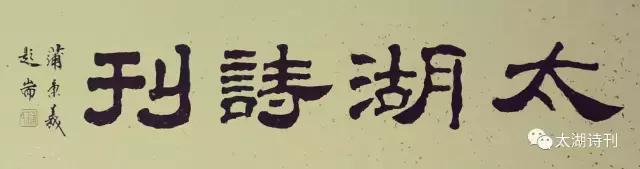 太湖詩刊
蒲秉義
題耑
太湖诗刊